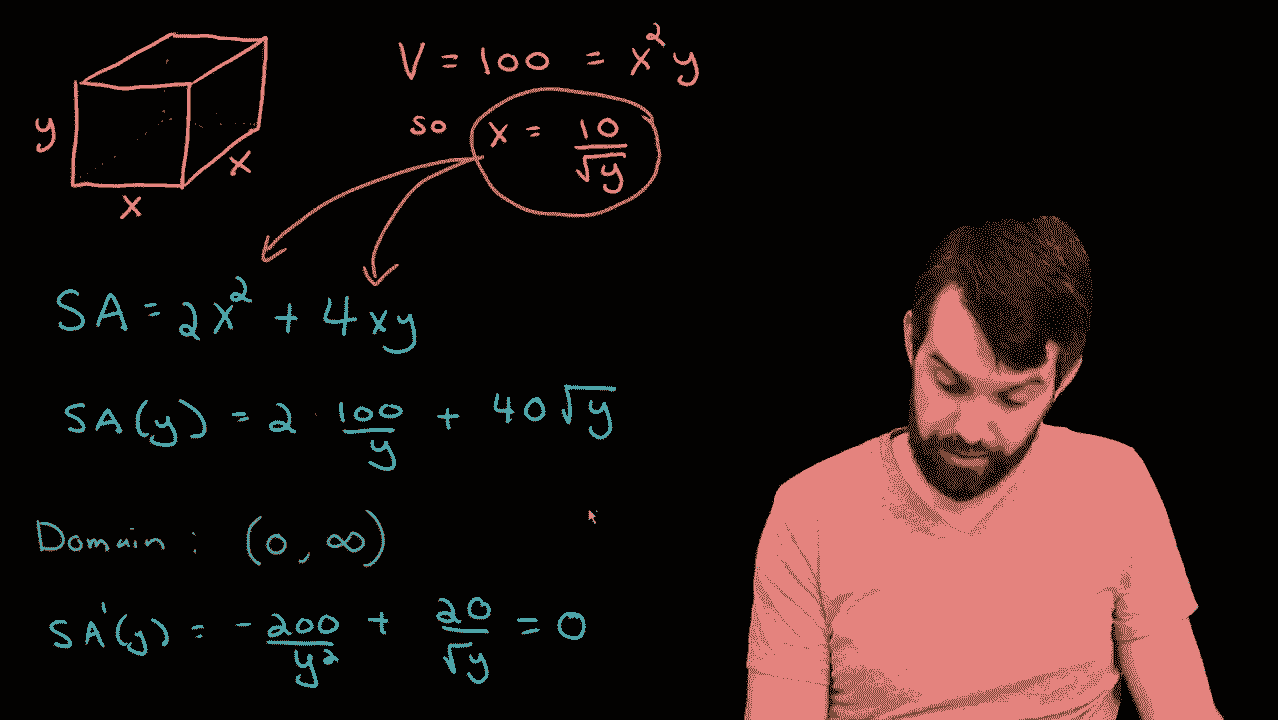 V = 100 = x²y
y
so x = 10/√y
x
x
SA = 2x² + 4xy
SA(y) = 2 · 100/y + 40√y
Domain : (0, ∞)
SA'(y) = -200/y² + 20/√y = 0